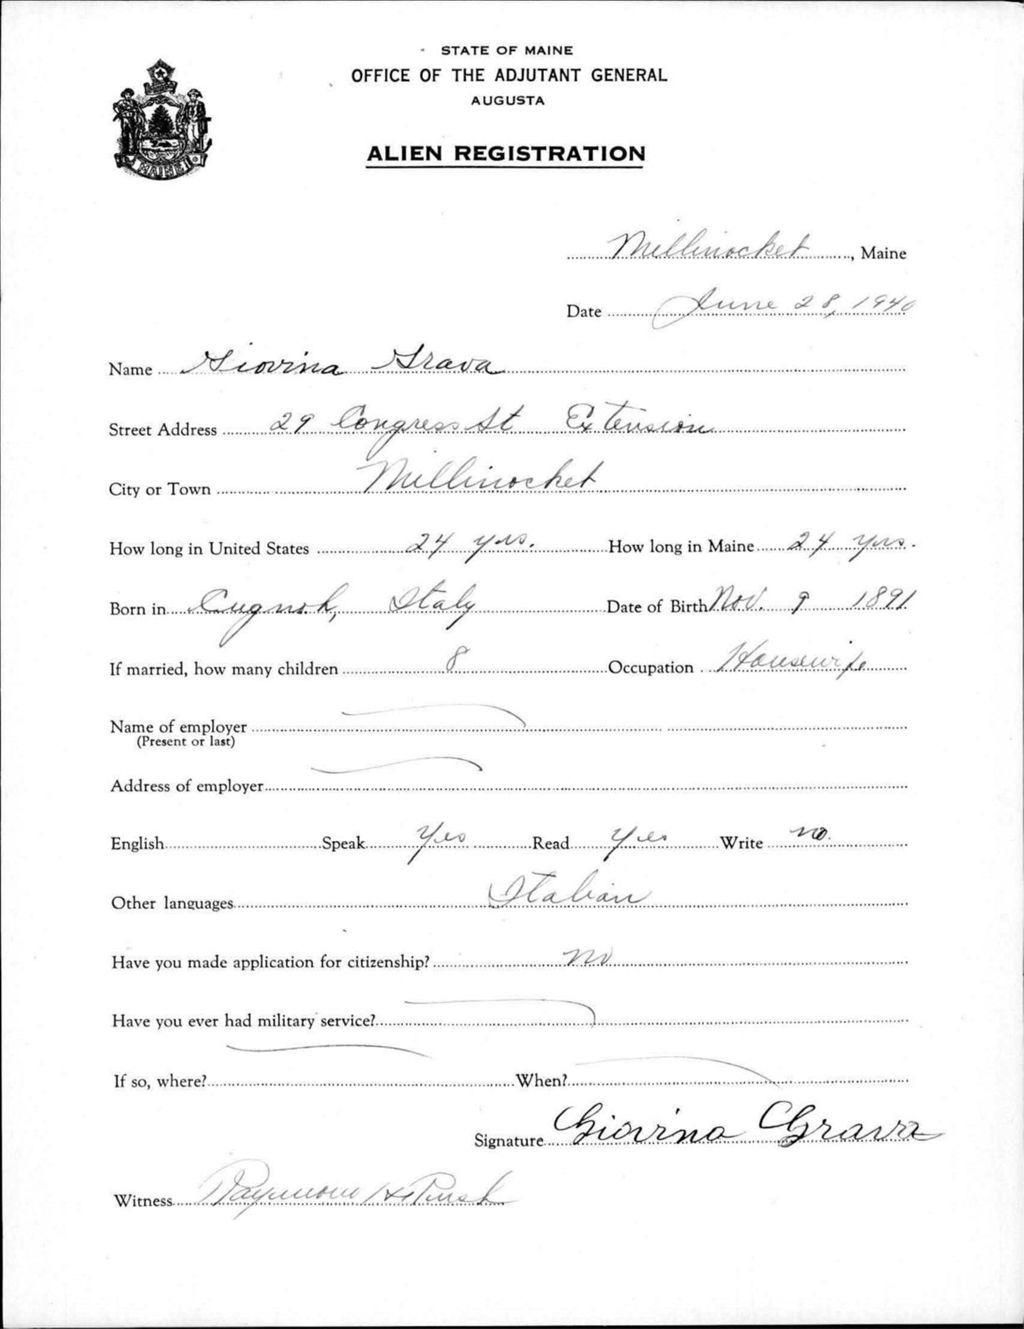 STATE OF MAINE
OFFICE OF THE ADJUTANT GENERAL
AUGUSTA
ALIEN REGISTRATION
MAINE
Millinocket, Maine
Date June 28, 1940
Name Giovina Grava
Street Address 29 Congress St Extension
City or Town Millinocket
How long in United States 24 yrs. How long in Maine 24 yrs.
Born in Italy Date of Birth Nov. 9 1891
If married, how many children 8 Occupation Housewife
Name of employer
(Present or last)
Address of employer
English Speak Yes Read Yes Write no
Other languages Italian
Have you made application for citizenship? no
Have you ever had military service?
If so, where? When?
Signature Giovina Grava
Witness Raymond H.